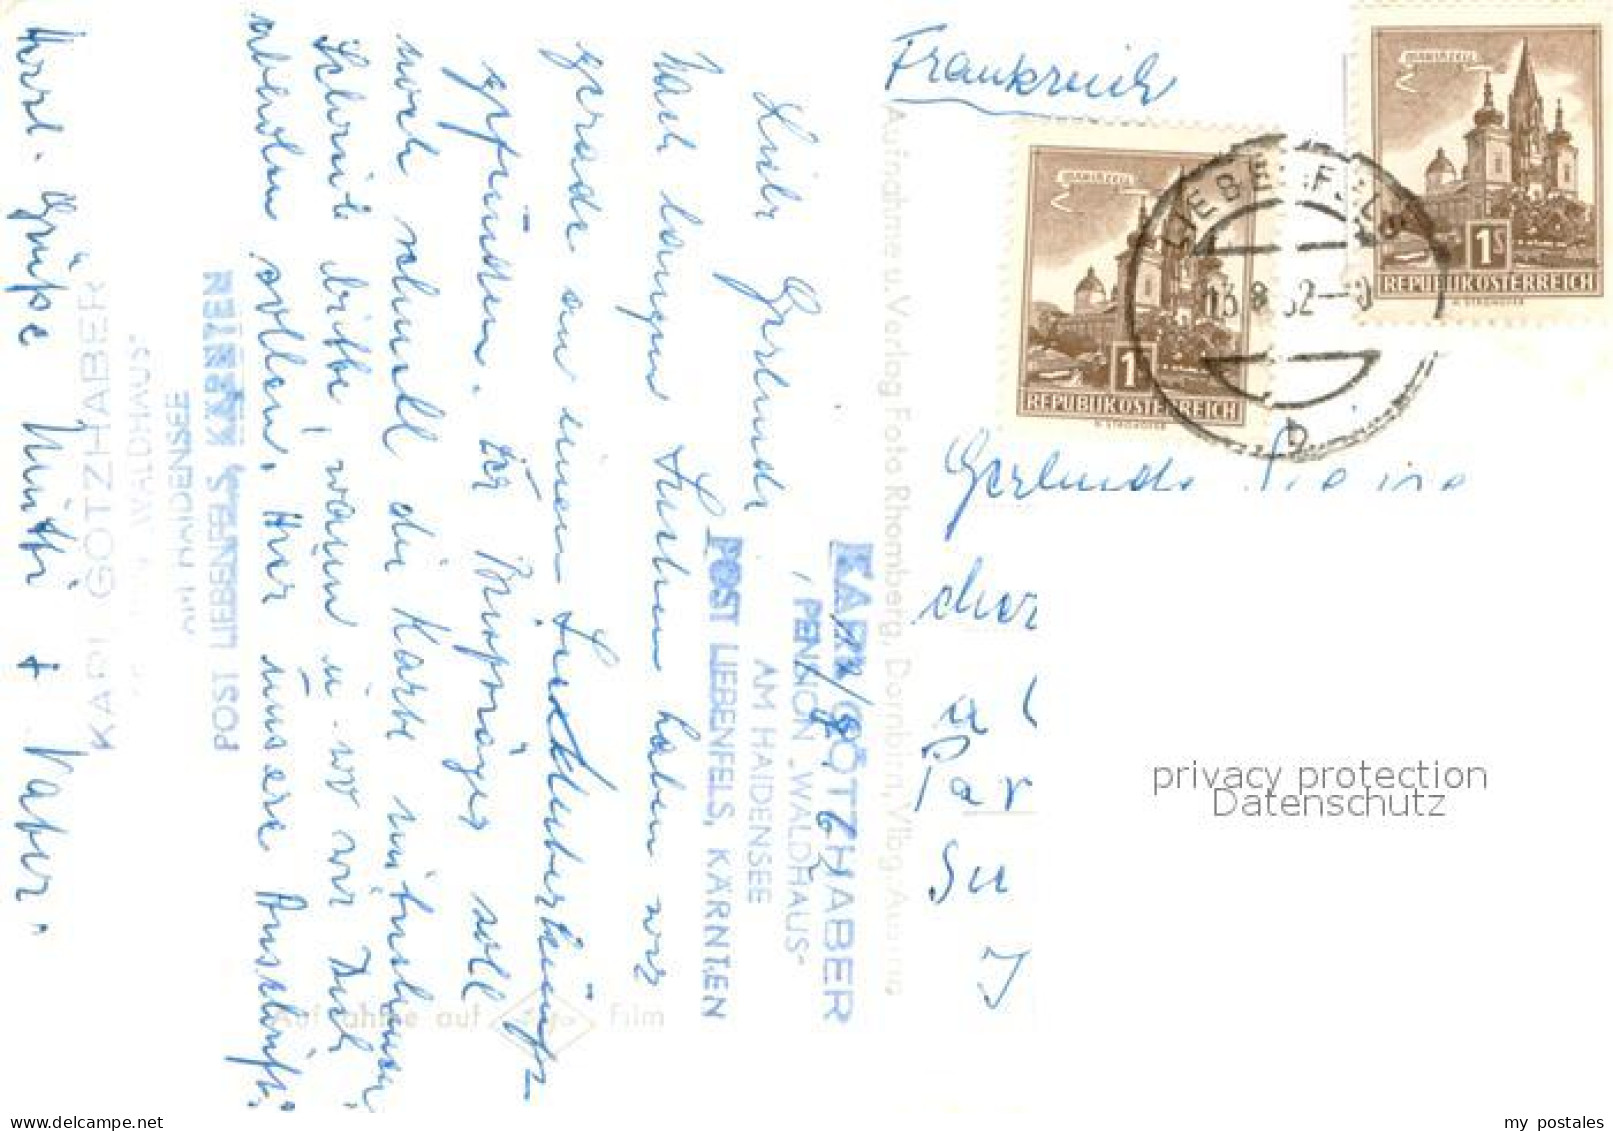 Frankreich
MARIAZELL
1S
REPUBLIK ÖSTERREICH
MARIAZELL
1
REPUBLIK ÖSTERREICH
LIEBENFELS
13.8.62
b
Liebe Gerlinde
Nach langem Suchen haben wir
gerade an einem See Unterkünft
gefunden. Der Briefträger soll
noch schnell die Karte mitnehmen.
Schreib bitte, wann u. wo wir Dich
abholen sollen. Hier unsere Anschrift:
KARL GÖTZHABER
PENSION „WALDHAUS"
AM HAIDENSEE
POST LIEBENFELS, KÄRNTEN
Herzl. Grüße Mutti + Vater.
KARL GÖTZHABER
WALDHAUS"
AM HAIDENSEE
POST LIEBENFELS, KÄRNTEN
Aufnahme u. Verlag Foto Rhomberg, Dornbirn, Vlbg. Austria
Aufnahme auf Agfa Film
Gerlinde
cher
Par
Su
privacy protection
Datenschutz
my postales
www.delcampe.net